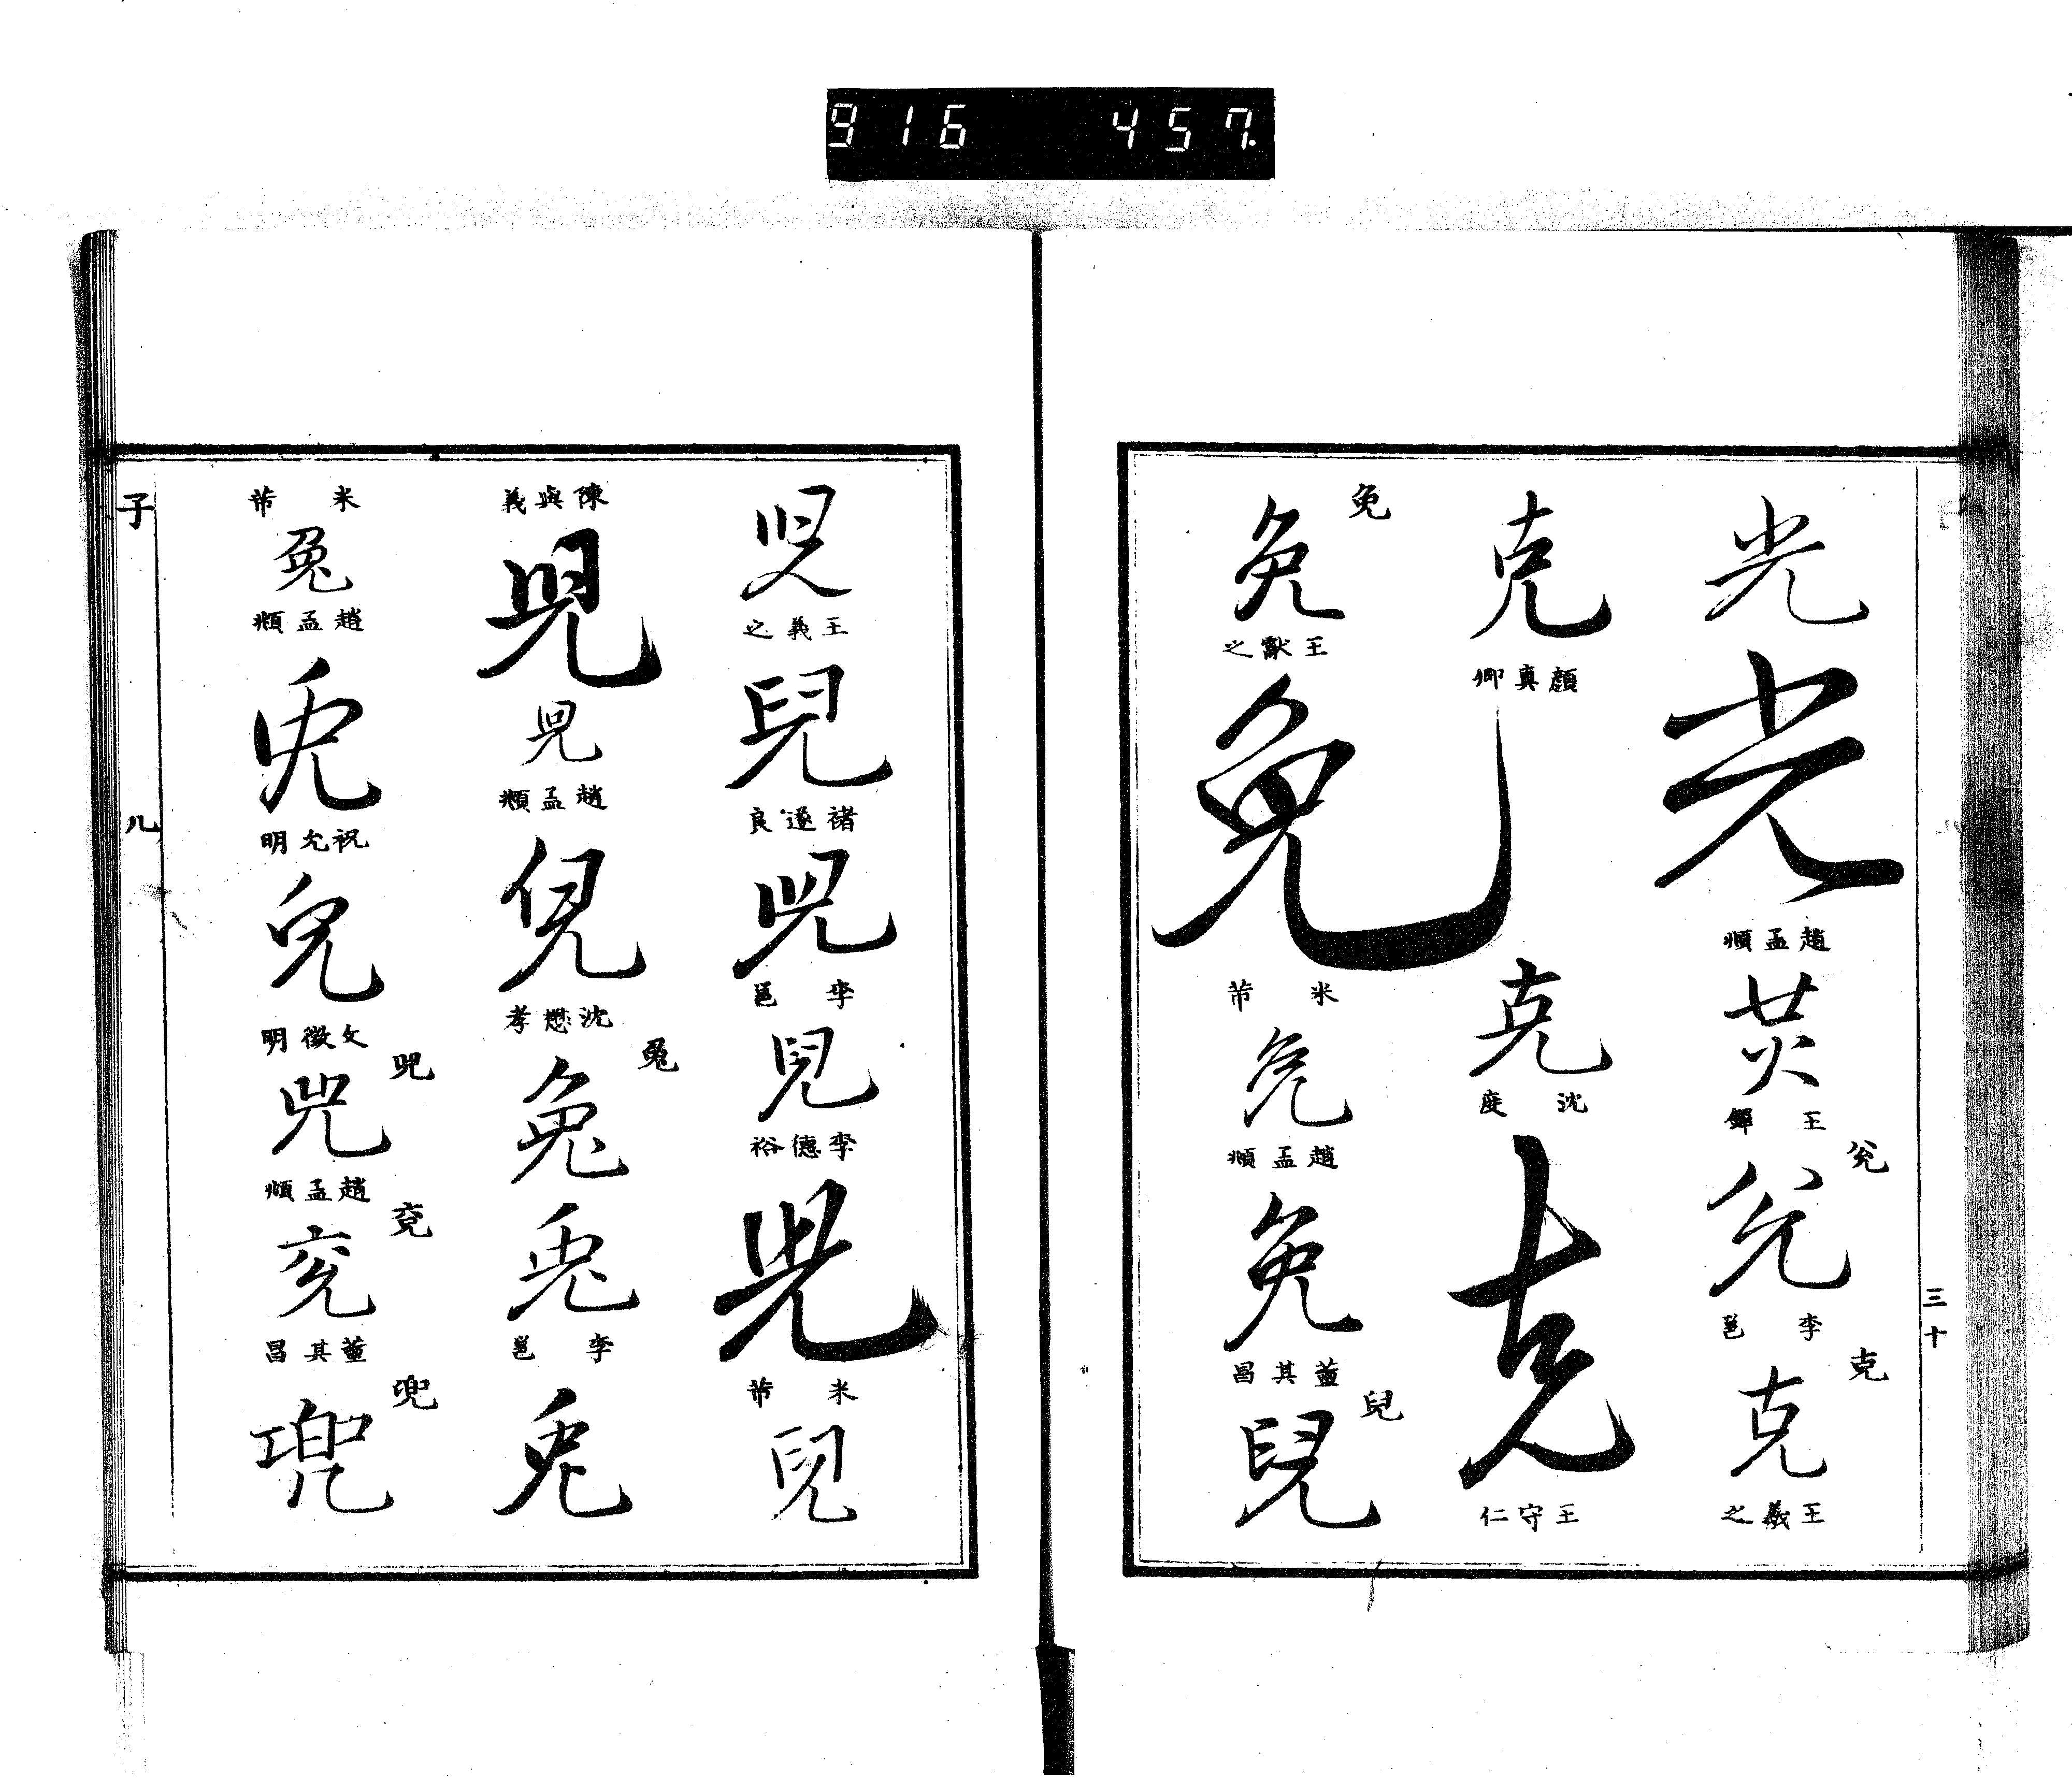 916 457.
光
光
趙孟頫
炗
王鐸
兊
兊
李邕
克
克
王羲之
三十
克
顏真卿
克
沈度
克
王守仁
免
免
王獻之
免
米芾
免
趙孟頫
免
董其昌
兒
兒
王羲之
兒
褚遂良
兒
李邕
兒
李德裕
兒
米芾
兒
陳與義
兒
兒
趙孟頫
倪
沈懋孝
兔
兔
兔
李邕
兔
米芾
兔
趙孟頫
兔
祝允明
兔
文徵明
兕
兕
趙孟頫
兗
兗
董其昌
兜
兜
子
儿